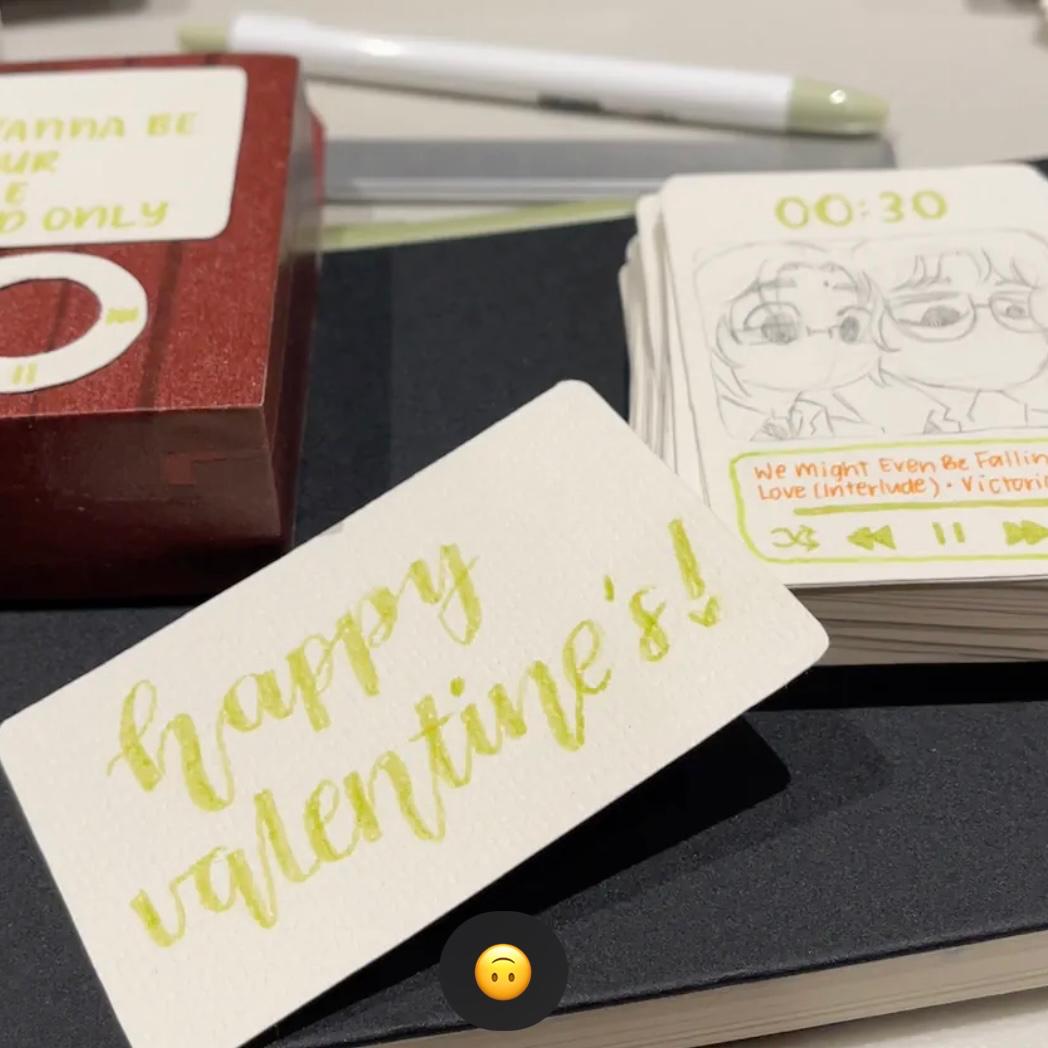 WANNA BE
UR
E
D ONLY
00:30
We might Even Be Fallin
Love (Interlude) • Victori
happy
valentine's!